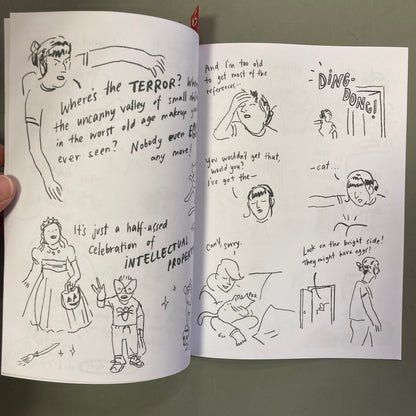 Where's the TERROR? Wh
the uncanny valley of small
in the worst old age makeup yo
ever seen? Nobody even E
any more!
It's just a half-assed
celebration of
INTELLECTUAL
PROPERT
And I'm too old
to get most of the
references...
DING-
DONG!
You wouldn't get that,
would you?
I've got the—
-cat...
Can't, sorry.
Look on the bright side!
They might have eggs!